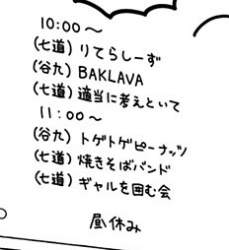 10:00〜
(七道) りてらしーず
(谷九) BAKLAVA
(七道) 適当に考えといて
11:00〜
(谷九) トゲトゲピーナッツ
(七道) 焼きそばバンド
(七道) ギャルを囲む会
昼休み